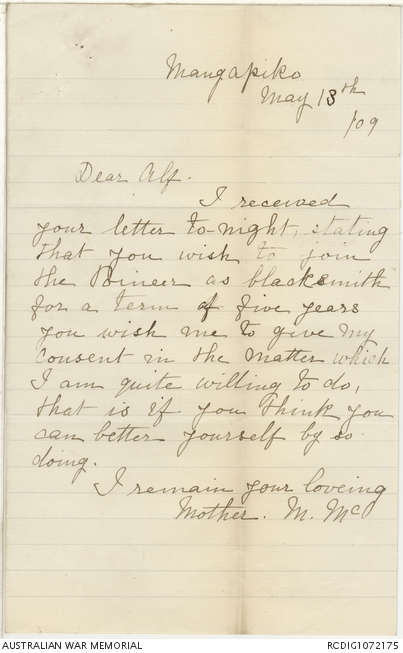 Mangapiko
May 13th
/09
Dear Alf.
I received
your letter to-night, stating
that you wish to join
the Poineer as blacksmith
for a term of five years
you wish me to give my
consent in the matter which
I am quite willing to do,
that is if you think you
can better yourself by so
doing.
I remain your loveing
Mother. M. Mc
AUSTRALIAN WAR MEMORIAL
RCDIG1072175